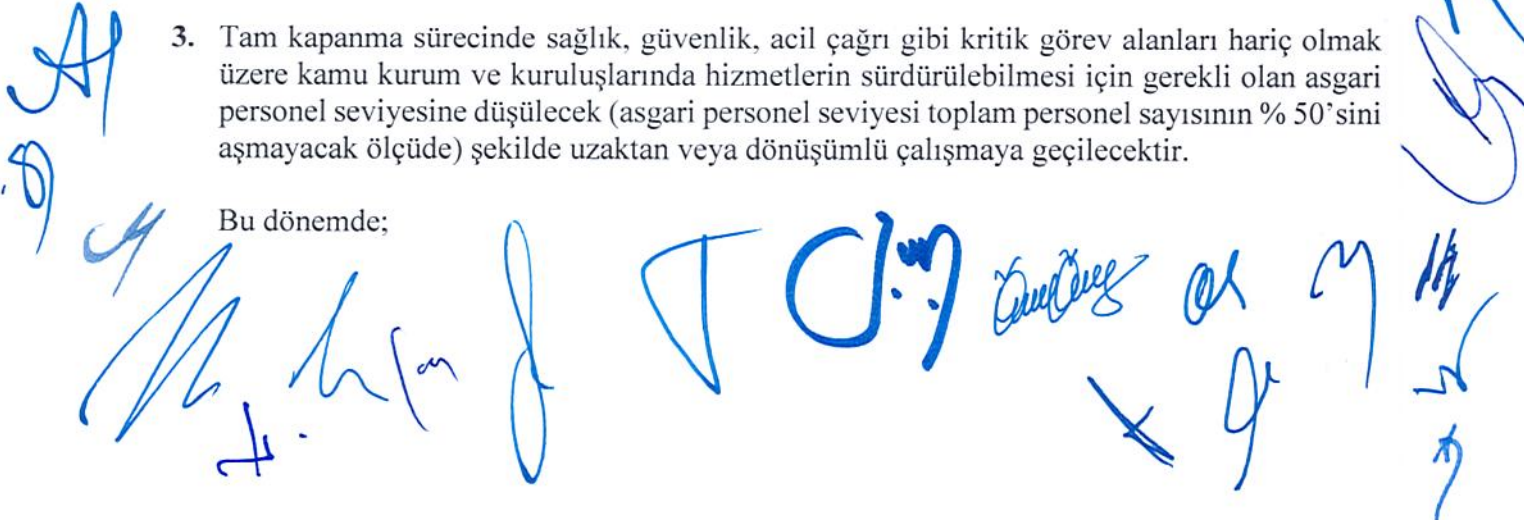 3. Tam kapanma sürecinde sağlık, güvenlik, acil çağrı gibi kritik görev alanları hariç olmak
üzere kamu kurum ve kuruluşlarında hizmetlerin sürdürülebilmesi için gerekli olan asgari
personel seviyesine düşülecek (asgari personel seviyesi toplam personel sayısının % 50’sini
aşmayacak ölçüde) şekilde uzaktan veya dönüşümlü çalışmaya geçilecektir.
Bu dönemde;